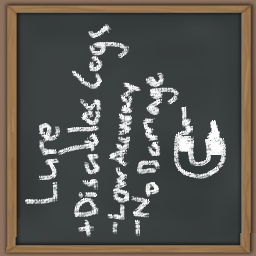 Lure
+Disables Cogs
-Low Accuracy
-No Damage